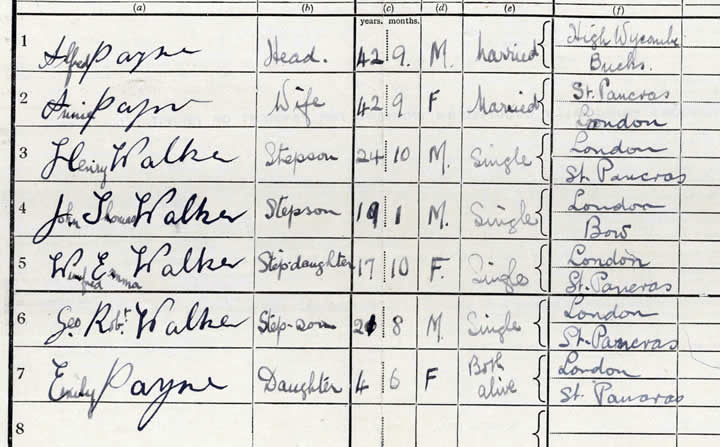 (a) (b) (c) (d) (e) (f)
years. months.
1 Alfred Payne Head. 42 9. M. Married High Wycombe
Bucks.
2 Annie Payne Wife 42 9 F Married St. Pancras
London
3 Henry Walker Stepson 24 10 M. Single London
St. Pancras
4 John Thomas Walker Stepson 19 1 M. Single London
Bow
5 Winifred Emma Walker Step-daughter 17 10 F. Single London
St. Pancras
6 Geo. Robt. Walker Step-son 21 8 M. Single London
St. Pancras
7 Emily Payne Daughter 4 6 F Both London
alive St. Pancras
8